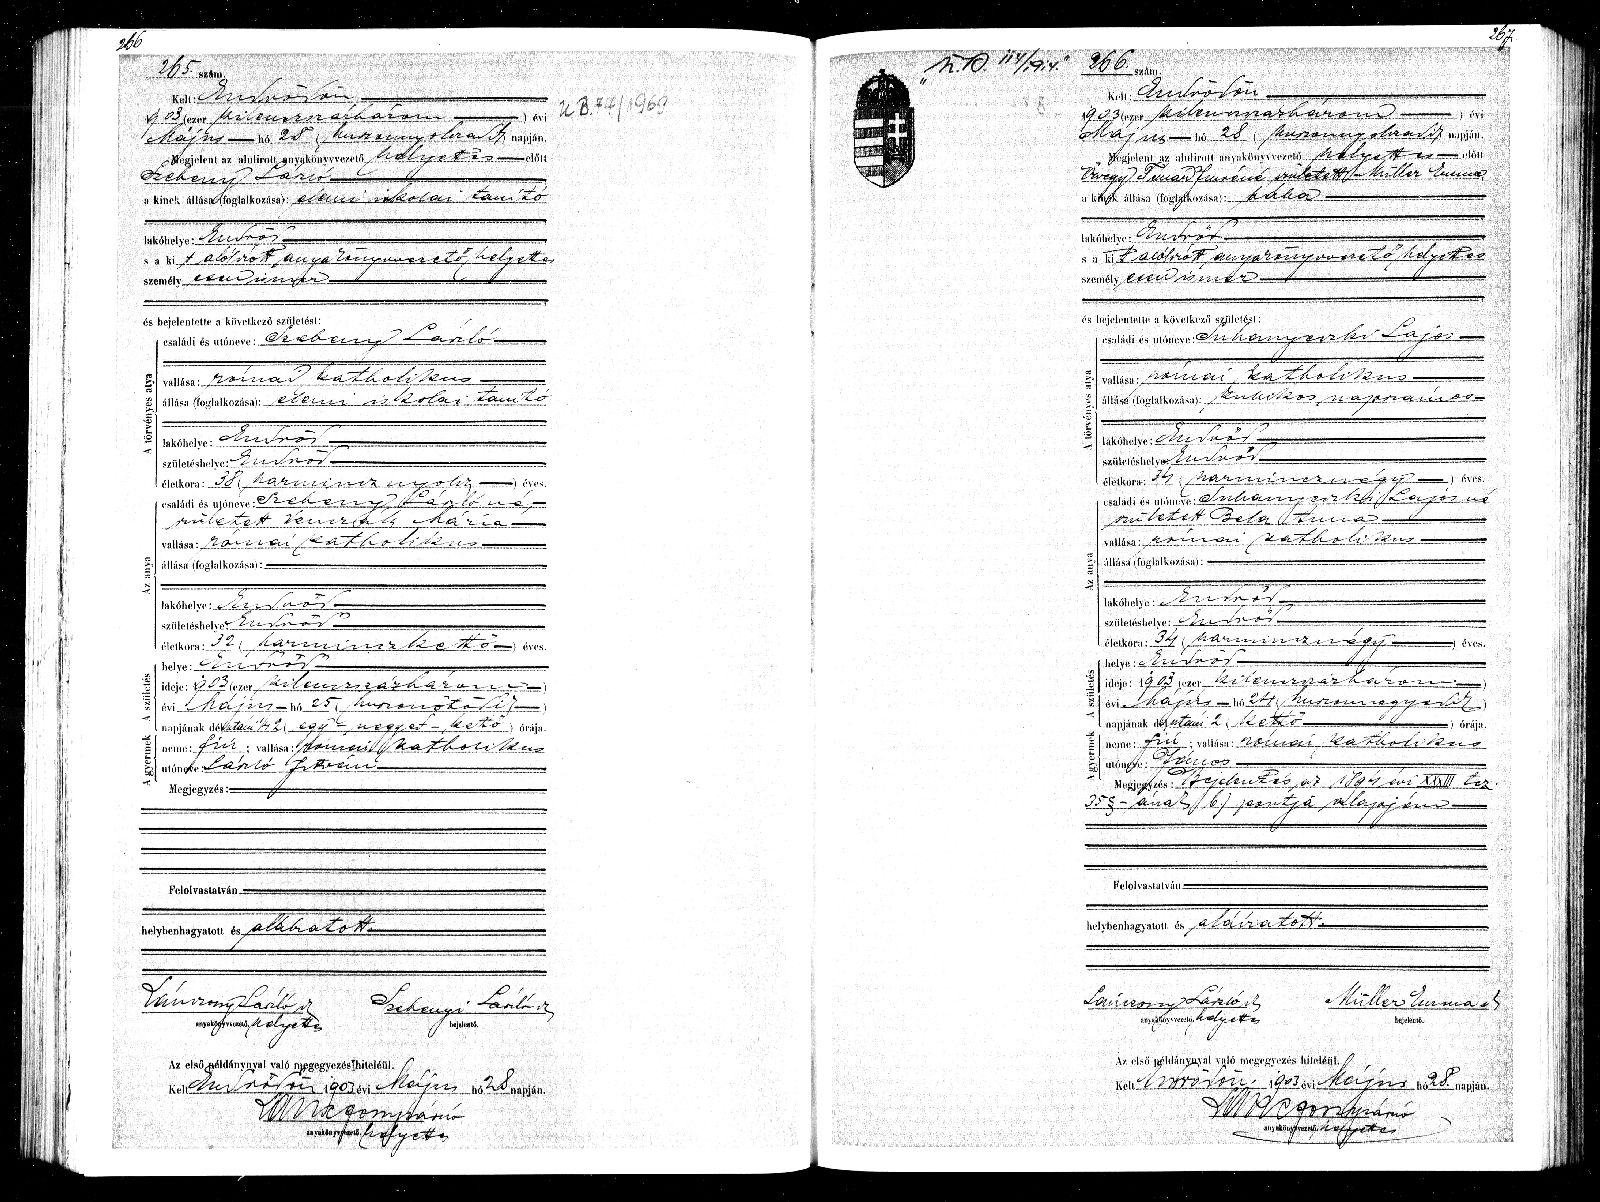 266
265. szám.
Kelt: Endrődön
1903 (ezer kilenczszázhárom ) évi
Május hó 28 ( huszonnyolczadik napján.
Megjelent az alulirott anyakönyvvezető helyettes előtt
Szebenyi László
a kinek állása (foglalkozása): elemi iskolai tanító
lakóhelye: Endrőd
s a kit alólírott anyakönyvvezető helyettes
személyesen ismer
és bejelentette a következő születést:
A törvényes atya
családi és utóneve: Szebenyi László
vallása: római katholikus
állása (foglalkozása): elemi iskolai tanító
lakóhelye: Endrőd
születéshelye: Endrőd
életkora: 38 ( harmincznyolcz ) éves.
Az anya
családi és utóneve: Szebenyi Lászlóné,
született Mária
vallása: római katholikus
állása (foglalkozása):
lakóhelye: Endrőd
születéshelye: Endrőd
életkora: 32 ( harminczkettő ) éves.
A születés
helye: Endrőd
ideje: 1903 (ezer kilenczszázhárom )
évi Május hó 25 ( huszonötödik )
napjának délutáni 1/4 2 ( egy negyed kettő ) órája.
A gyermek
neme: fiú ; vallása: római katholikus
utóneve: László István
Megjegyzés:
Felolvastatván
helybenhagyatott és aláíratott.
Lánczony László sk
Szebenyi László sk
anyakönyvvezető, helyettes
bejelentő.
Az első példánynyal való megegyezés hiteléül.
Kelt Endrődön 1903 évi Május hó 28 napján.
anyakönyvvezető. helyettes
267
266. szám.
Kelt: Endrődön
1903 (ezer kilenczszázhárom ) évi
Május hó 28 ( huszonnyolczadik napján.
Megjelent az alulirott anyakönyvvezető helyettes előtt
Özvegy Imréné született Müller Emma
a kinek állása (foglalkozása): bába
lakóhelye: Endrőd
s a kit alólírott anyakönyvvezető helyettes
személyesen ismer
és bejelentette a következő születést:
A törvényes atya
családi és utóneve: Suhanyeczki Lajos
vallása: római katholikus
állása (foglalkozása): kubikos napszámos
lakóhelye: Endrőd
születéshelye: Endrőd
életkora: 34 ( harmincznégy ) éves.
Az anya
családi és utóneve: Suhanyeczki Lajosné
született Bela Anna
vallása: római katholikus
állása (foglalkozása):
lakóhelye: Endrőd
születéshelye: Endrőd
életkora: 34 ( harmincznégy ) éves.
A születés
helye: Endrőd
ideje: 1903 (ezer kilenczszázhárom )
évi Május hó 24 ( huszonnegyedik )
napjának délutáni 2 ( kettő ) órája.
A gyermek
neme: fiú ; vallása: római katholikus
utóneve: János
Megjegyzés: Bejelentés az 1894 évi XXXIII tcz.
35 § -ának b) pontja alapján
Felolvastatván
helybenhagyatott és aláíratott.
Lánczony László sk
Müller Emma sk
anyakönyvvezető. helyettes
bejelentő.
Az első példánynyal való megegyezés hiteléül.
Kelt Endrődön 1903 évi Május hó 28. napján.
anyakönyvvezető. helyettes